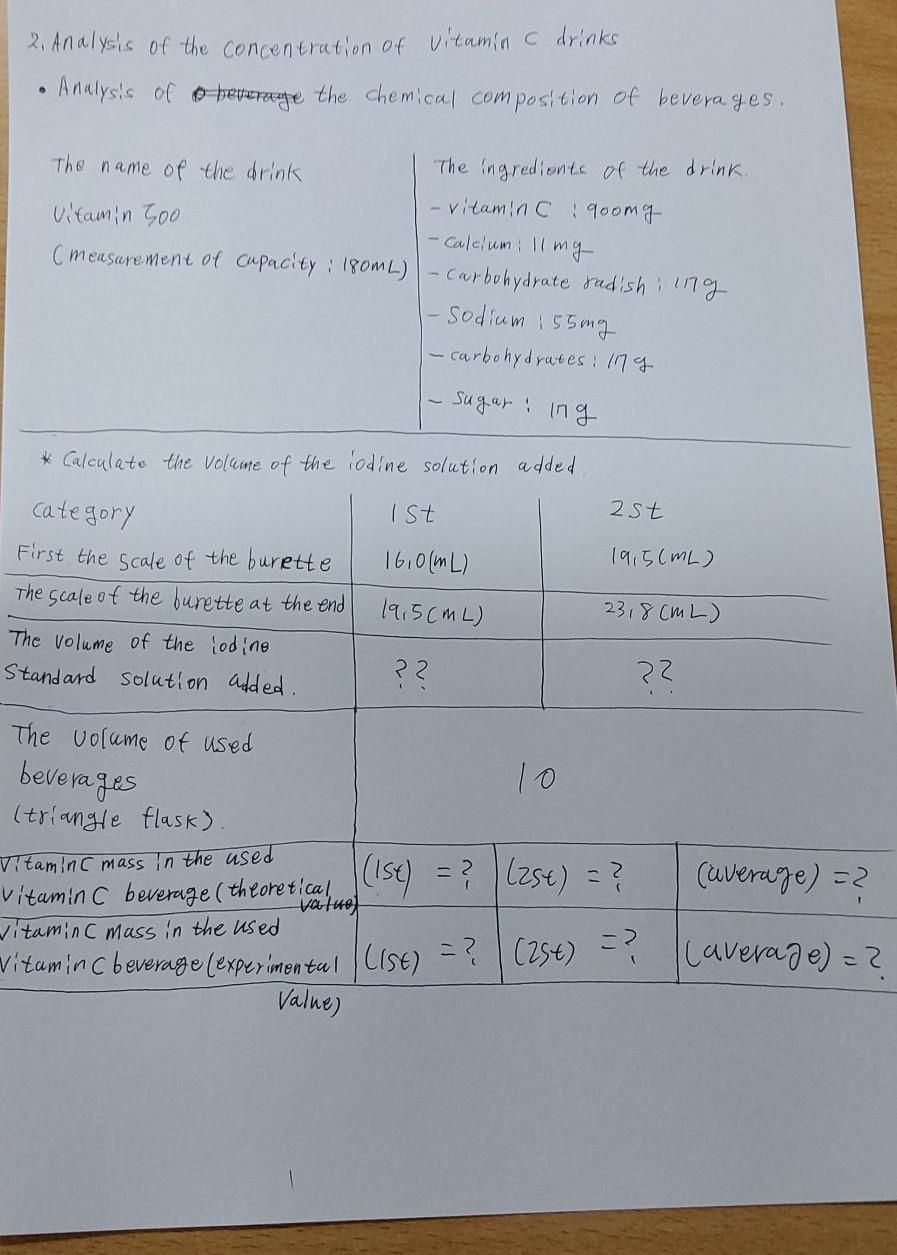 2. Analysis of the concentration of vitamin C drinks
• Analysis of beverage the chemical composition of beverages.
The name of the drink
Vitamin 500
(measurement of capacity : 180mL)
The ingredients of the drink.
- vitamin C : 900mg
- calcium : 11mg
- carbohydrate radish : 17g
- Sodium : 55mg
- carbohydrates : 17g
- Sugar : 17g
* Calculate the volume of the iodine solution added.
Category 1St 2st
First the scale of the burette 16.0(mL) 19.5(mL)
The scale of the burette at the end 19.5(mL) 23.8(mL)
The volume of the iodine
Standard solution added. ?? ??
The volume of used
beverages
(triangle flask). 10
Vitamin C mass in the used
vitamin C beverage (theoretical value) (1st) = ? (2st) = ? (average) = ?
Vitamin C mass in the used
Vitamin C beverage (experimental (1st) = ? (2st) = ? (average) = ?
Value)
1